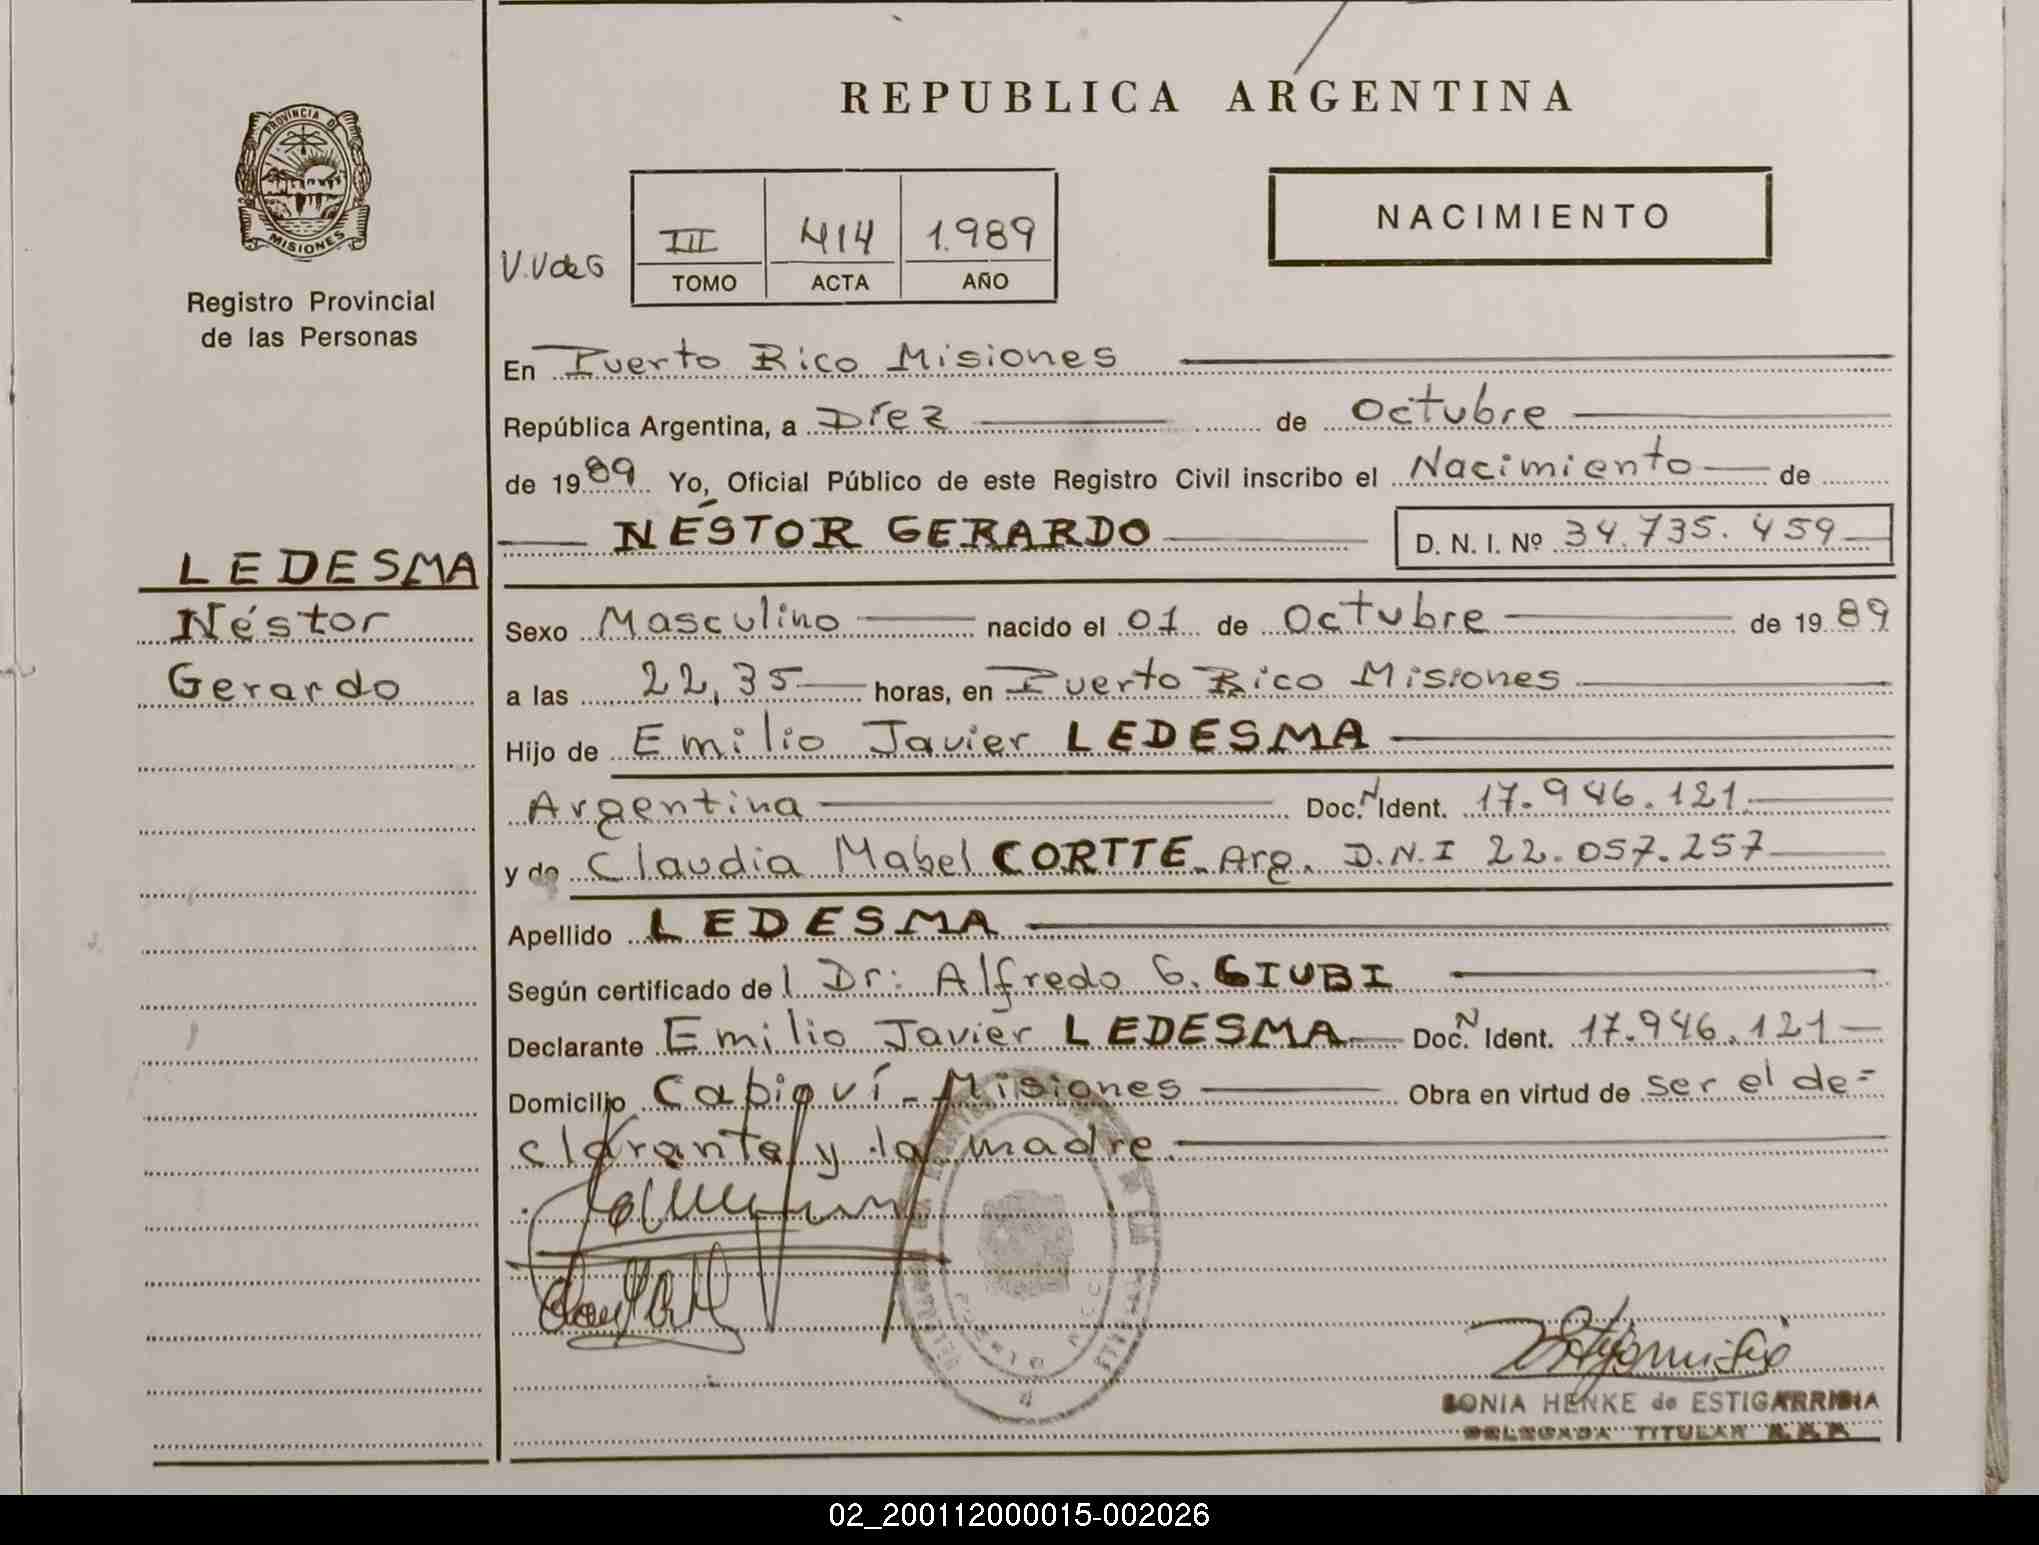 PROVINCIA DE
MISIONES
Registro Provincial
de las Personas
LEDESMA
Néstor
Gerardo
REPUBLICA ARGENTINA
NACIMIENTO
V.V de G
III 414 1.989
TOMO ACTA AÑO
En Puerto Rico Misiones
República Argentina, a Diez de Octubre
de 1989 Yo, Oficial Público de este Registro Civil inscribo el Nacimiento de
NÉSTOR GERARDO D. N. I. Nº 34.735.459
Sexo Masculino nacido el 01 de Octubre de 1989
a las 22,35 horas, en Puerto Rico Misiones
Hijo de Emilio Javier LEDESMA
Argentina Doc. N Ident. 17.946.121
y de Claudia Mabel CORTTE. Arg. D.N.I 22.057.257
Apellido LEDESMA
Según certificado del Dr: Alfredo G. GIUBI
Declarante Emilio Javier LEDESMA Doc. N Ident. 17.946.121
Domicilio Capioví - Misiones Obra en virtud de ser el de=
clarante y la madre.
SONIA HENKE de ESTIGARRIBIA
DELEGADA TITULAR
02_200112000015-002026